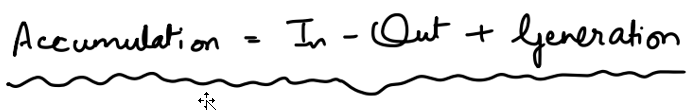 Accumulation = In - Out + Generation